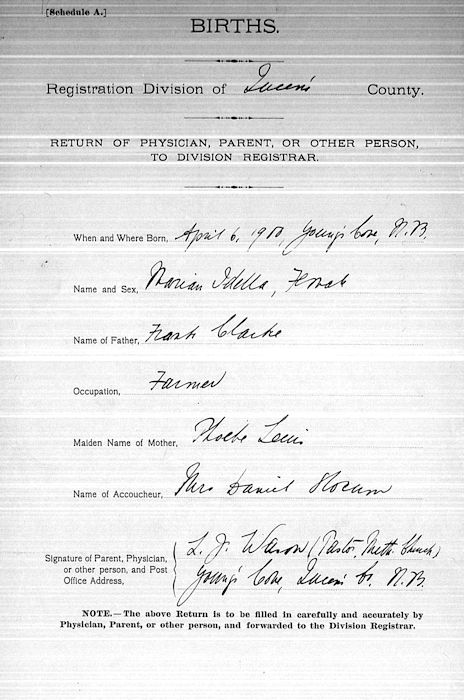 [Schedule A.]
BIRTHS.
Registration Division of Queen's County.
RETURN OF PHYSICIAN, PARENT, OR OTHER PERSON,
TO DIVISION REGISTRAR.
When and Where Born, April 6, 1900, Young's Cove, N.B.
Name and Sex, Marian Idella, Female
Name of Father, Frank Clarke
Occupation, Farmer
Maiden Name of Mother, Phoebe Lewis
Name of Accoucheur, Mrs Daniel Slocum
Signature of Parent, Physician, L. J. (Pastor, Meth. Church)
or other person, and Post Young's Cove, Queen's Co. N.B.
Office Address,
NOTE.—The above Return is to be filled in carefully and accurately by
Physician, Parent, or other person, and forwarded to the Division Registrar.